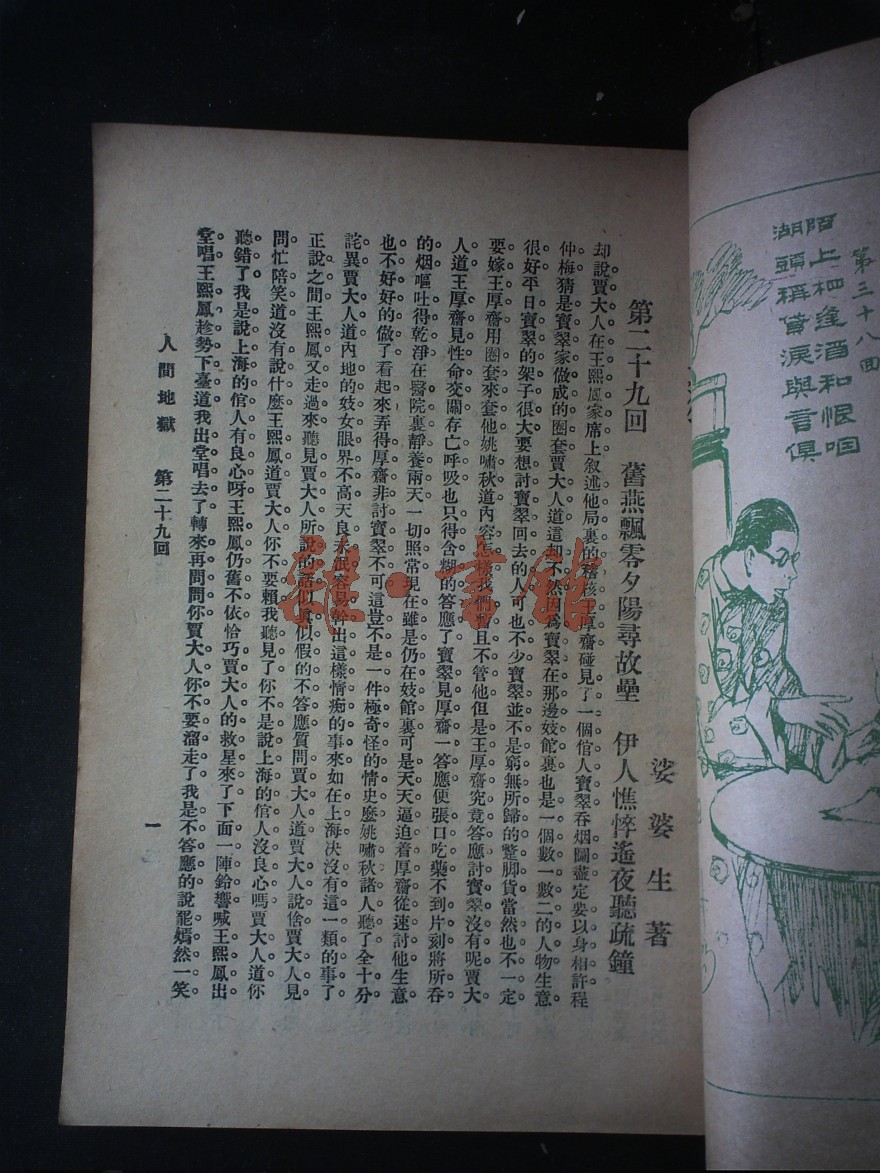 第三十八回
陌上相逢酒和恨咽
湖頭稱貸淚與言俱
娑婆生著
第二十九回　舊燕飄零夕陽尋故壘　伊人憔悴遙夜聽疏鐘
却說賈大人在王熙鳳家席上叙述他局裏的稽核厚齋碰見了一個倌人寶翠吞烟圖盡定要以身相許程
仲梅猜是寶翠家做成的圈套賈大人道這却不然因爲寶翠在那邊妓館裏也是一個數一數二的人物生意
很好平日寶翠的架子很大要想討寶翠回去的人可也不少寶翠並不是窮無所歸的蹩脚貨當然也不一定
要嫁王厚齋用圈套來套他姚嘯秋道內容怎樣我們暫且不管他但是王厚齋究竟答應討寶翠沒有呢賈大
人道王厚齋見性命交關存亡呼吸也只得含糊的答應了寶翠見厚齋一答應便張口吃藥不到片刻將所吞
的烟嘔吐得乾淨在醫院裏靜養兩天一切照常現在雖是仍在妓館裏可是天天逼迫着厚齋從速討他生意
也不好好的做了看起來弄得厚齋非討寶翠不可這豈不是一件極奇怪的情史麼姚嘯秋諸人聽了全十分
詫異賈大人道內地的妓女眼界不高天良未泯容易幹出這樣情痴的事來如在上海決沒有這一類的事了
正說之間王熙鳳又走過來聽見賈大人所說的話似眞似假的不答應質問賈大人道賈大人說倽賈大人見
問忙陪笑道沒有說什麼王熙鳳道賈大人你不要賴我聽見了你不是說上海的倌人沒良心嗎賈大人道你
聽錯了我是說上海的倌人有良心呀王熙鳳仍舊不依恰巧賈大人的救星來了下面一陣鈴響喊王熙鳳出
堂唱王熙鳳趁勢下臺道我出堂唱去了轉來再問問你賈大人你不要溜走了我是不答應的說罷嫣然一笑
人間地獄　第二十九回
一
雜·書館